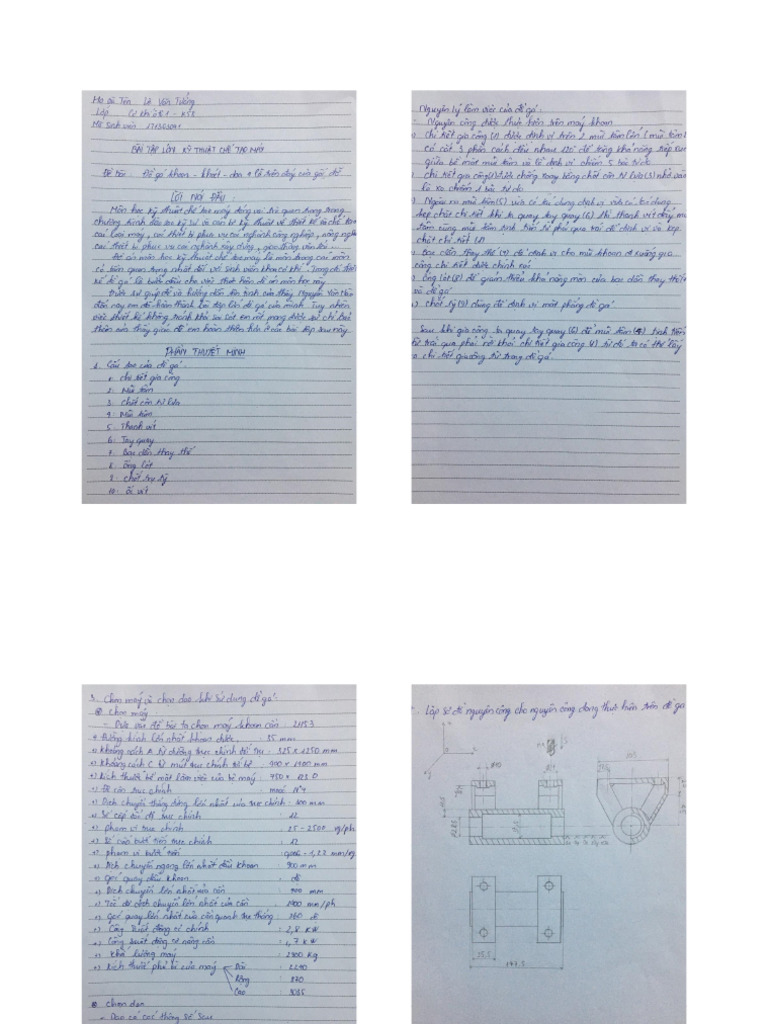 Họ và Tên Lê Văn Tưởng
Lớp Cơ khí ôtô 1 - K58
Mã sinh viên 171303091
BÀI TẬP LỚN KỸ THUẬT CHẾ TẠO MÁY
Đề tài: Đồ gá khoan - khoét - doa 4 lỗ trên đáy của gối đỡ
LỜI NÓI ĐẦU
Môn học kỹ thuật chế tạo máy đóng vai trò quan trọng trong
chương trình đào tạo kỹ sư và cán bộ kỹ thuật về thiết kế và chế tạo
các loại máy, các thiết bị phục vụ các nghành công nghiệp, nông nghiệp
các thiết bị phục vụ các nghành xây dựng, giao thông vận tải...
Đồ án môn học kỹ thuật chế tạo máy là môn trong các môn
có tầm quan trọng nhất đối với sinh viên khoa cơ khí. Trong đó thiết
kế đồ gá là bước đầu cho việc thực hiện đồ án môn học này
Được sự giúp đỡ và hướng dẫn tận tình của thầy Nguyễn Văn
đến nay em đã hoàn thành bài tập lớn đồ gá của mình. Tuy nhiên
việc thiết kế không tránh khỏi sai sót em rất mong được sự chỉ bảo
thêm của thầy giáo để em hoàn thiện hơn ở các bài tập sau này.
PHẦN THUYẾT MINH
1. Cấu tạo của đồ gá:
1. Chi tiết gia công
2. Mũi tâm
3. Chốt côn lò xo
4. Mũi tâm
5. Thanh vít
6. Tay quay
7. Bạc dẫn thay thế
8. ống lót
9. chốt trụ tỳ
10. ốc vít
Nguyên lý làm việc của đồ gá:
Nguyên công được thực hiện trên máy khoan
chi tiết gia công (1) được định vị trên 2 mũi tâm lớn (mũi tâm)
có cắt 3 phần cách đều nhau 120 để tăng khả năng tiếp xúc
giữa bề mặt mũi tâm và lỗ định vị chiếm 5 bậc tự do
chi tiết gia công (1) được chống xoay bằng chốt côn (3) nhờ vào
lò xo chiếm 1 bậc tự do
Ngoài ra mũi tâm (5) vừa có tác dụng định vị vừa có tác dụng
kẹp chặt chi tiết khi ta quay tay quay (6) thì thanh vít đẩy mũi
tâm cùng mũi tâm tịnh tiến từ phải qua trái để định vị và kẹp
chặt chi tiết (1)
Bạc dẫn thay thế (7) để định vị cho mũi khoan đi xuống gia
công chi tiết được chính xác
ống lót (8) để giảm thiểu khả năng mòn của bạc dẫn thay thế
và đồ gá
chốt tỳ (9) dùng để định vị mặt phẳng đồ gá
Sau khi gia công ta quay tay quay (6) để mũi tâm (4) tịnh tiến
từ trái qua phải nới khỏi chi tiết gia công (1) từ đó ta có thể lấy
chi tiết gia công từ trong đồ gá.
3. Chọn máy và chọn dao khi sử dụng đồ gá:
chọn máy
- Dựa vào đề bài ta chọn máy khoan cần: 2H53
+) Đường kính lớn nhất khoan được : 35 mm
+) Khoảng cách A từ đường trục chính tới trụ : 325 x 1250 mm
+) Khoảng cách C từ mút trục chính tới bệ : 400 x 1400 mm
+) Kích thước bề mặt làm việc của bệ máy : 750 x 1230
+) Độ côn trục chính : mooc N°4
+) Dịch chuyển thẳng đứng lớn nhất của trục chính : 300 mm
+) Số cấp tốc độ trục chính : 12
+) phạm vi trục chính : 25 - 2500 vg/ph
+) Số của bước tiến trục chính : 12
+) phạm vi bước tiến : 0,056 - 1,22 mm/vg
+) Dịch chuyển ngang lớn nhất đầu khoan : 900 mm
+) Góc quay đầu khoan
+) Dịch chuyển lớn nhất của cần : 900 mm
+) Tốc độ dịch chuyển lớn nhất của cần : 1400 mm/ph
+) Góc quay lớn nhất của cần quanh trụ thẳng : 360 độ
+) Công suất động cơ chính : 2,8 KW
+) Công suất động cơ nâng cần : 1,7 KW
+) Khối lượng máy : 2900 Kg
+) Kích thước phủ bì của máy Dài : 2240
Rộng : 870
Cao : 3035
chọn dao
- Dao có các thông số sau
Lập sơ đồ nguyên công cho nguyên công đang thực hiện trên đồ gá
25.5